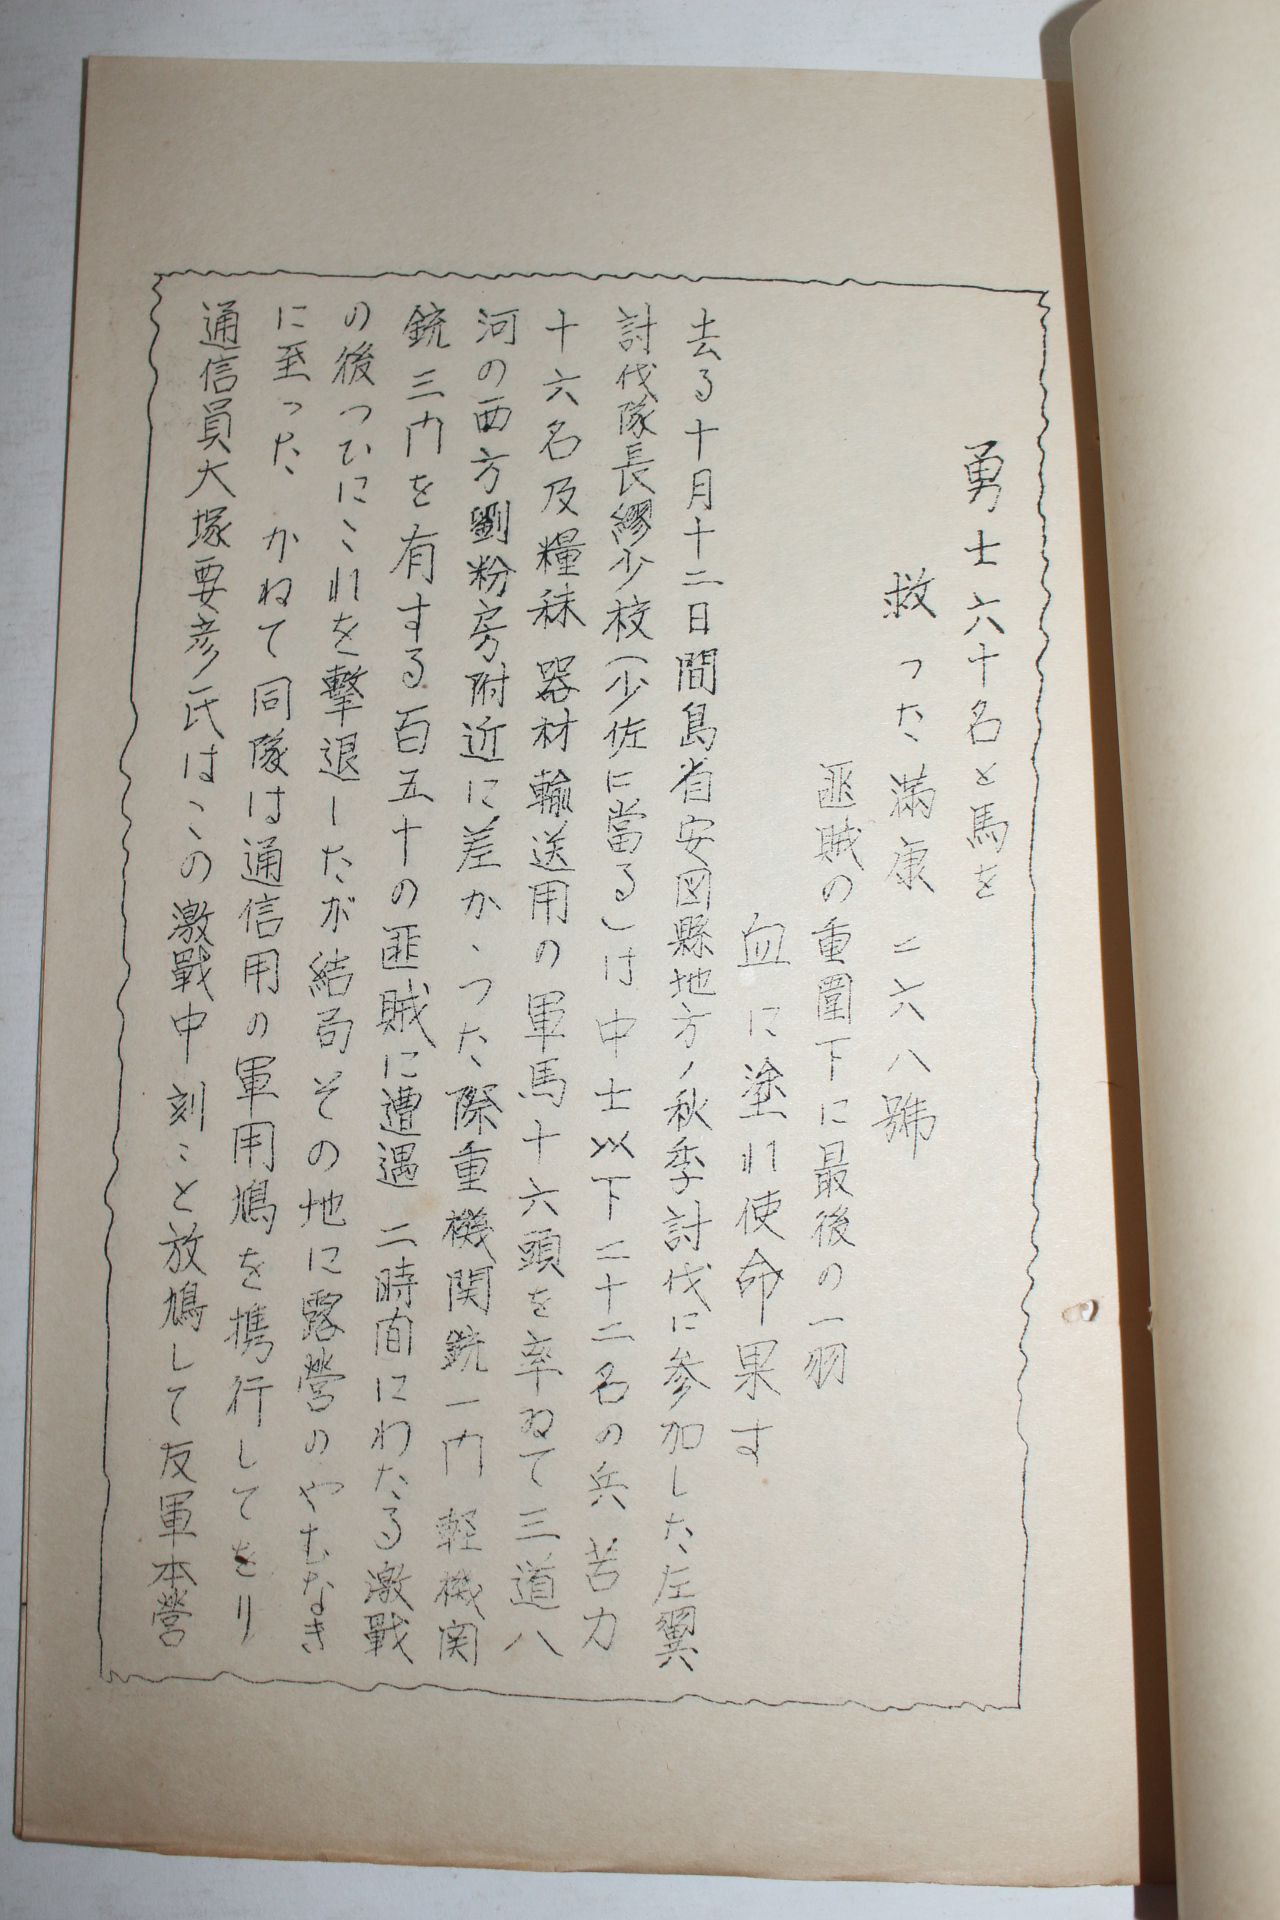 勇士六十名と馬を
救った満康二六八號
匪賊の重圍下に最後の一羽
血に塗れ使命果す
去る十月十二日間島省安図縣地方ノ秋季討伐に参加した左翼
討伐隊長繆少校(少佐に當る)は中士以下二十二名の兵苦力
十六名及糧秣器材輸送用の軍馬十六頭を率ゐて三道八
河の西方劉粉房附近に差かゝつた際重機関銃一門軽機関
銃三門を有する百五十の匪賊に遭遇二時間にわたる激戰
の後つひにこれを撃退したが結局その地に露營のやむなき
に至つた、かねて同隊は通信用の軍用鳩を携行してをり
通信員大塚要彦氏はこの激戰中刻々と放鳩して友軍本營